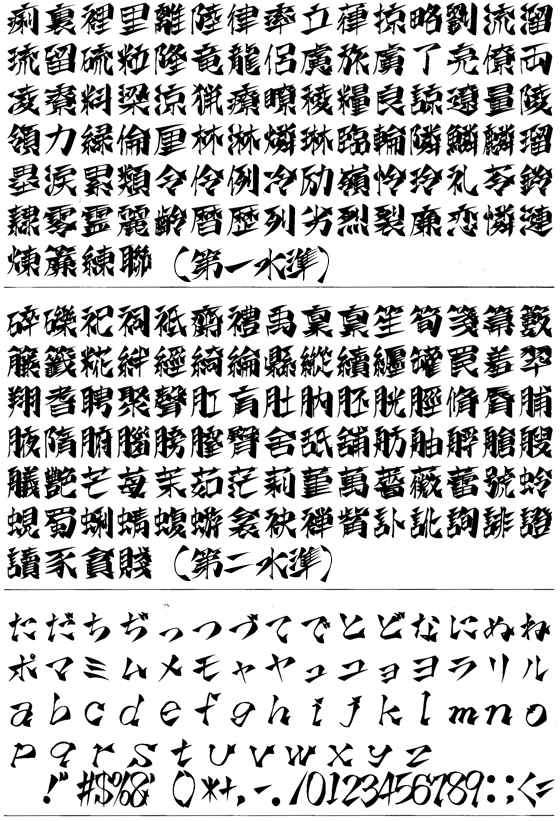 痢裏裡里離陸律率立葎掠略劉流溜
琉留硫粒隆竜龍侶慮旅虜了亮僚両
凌寮料梁涼猟療瞭稜糧良諒遼量陵
領力緑倫厘林淋燐琳臨輪隣鱗麟瑠
塁涙累類令伶例冷励嶺怜玲礼苓鈴
隷零霊麗齢暦歴列劣烈裂廉恋憐漣
煉簾練聯（第一水準）
碎礫祀祠祗齋禮禹稟禀笙筍箋篝籔
籐籤糀絆經綺綸縣縱續纒罐罠羞翆
翔耆聘聚聲肛肓肚肭胚胱脛脩脣脯
腋隋腑腦膀膣臀舍舐舖舫舳艀艙艘
艤艷芒苺茉茹茫莉菫萬薔薇蕾號蛉
蜆蜀蜊蜻蝮蝣衾袂襌觜訃訛詢誹證
讀豕貪賤（第二水準）
ただちぢっつづてでとどなにぬね
ポマミムメモャヤュユョヨラリル
abcdefghijklmno
pqrstuvwxyz
!"#$%&'()*+,-./0123456789:;<=